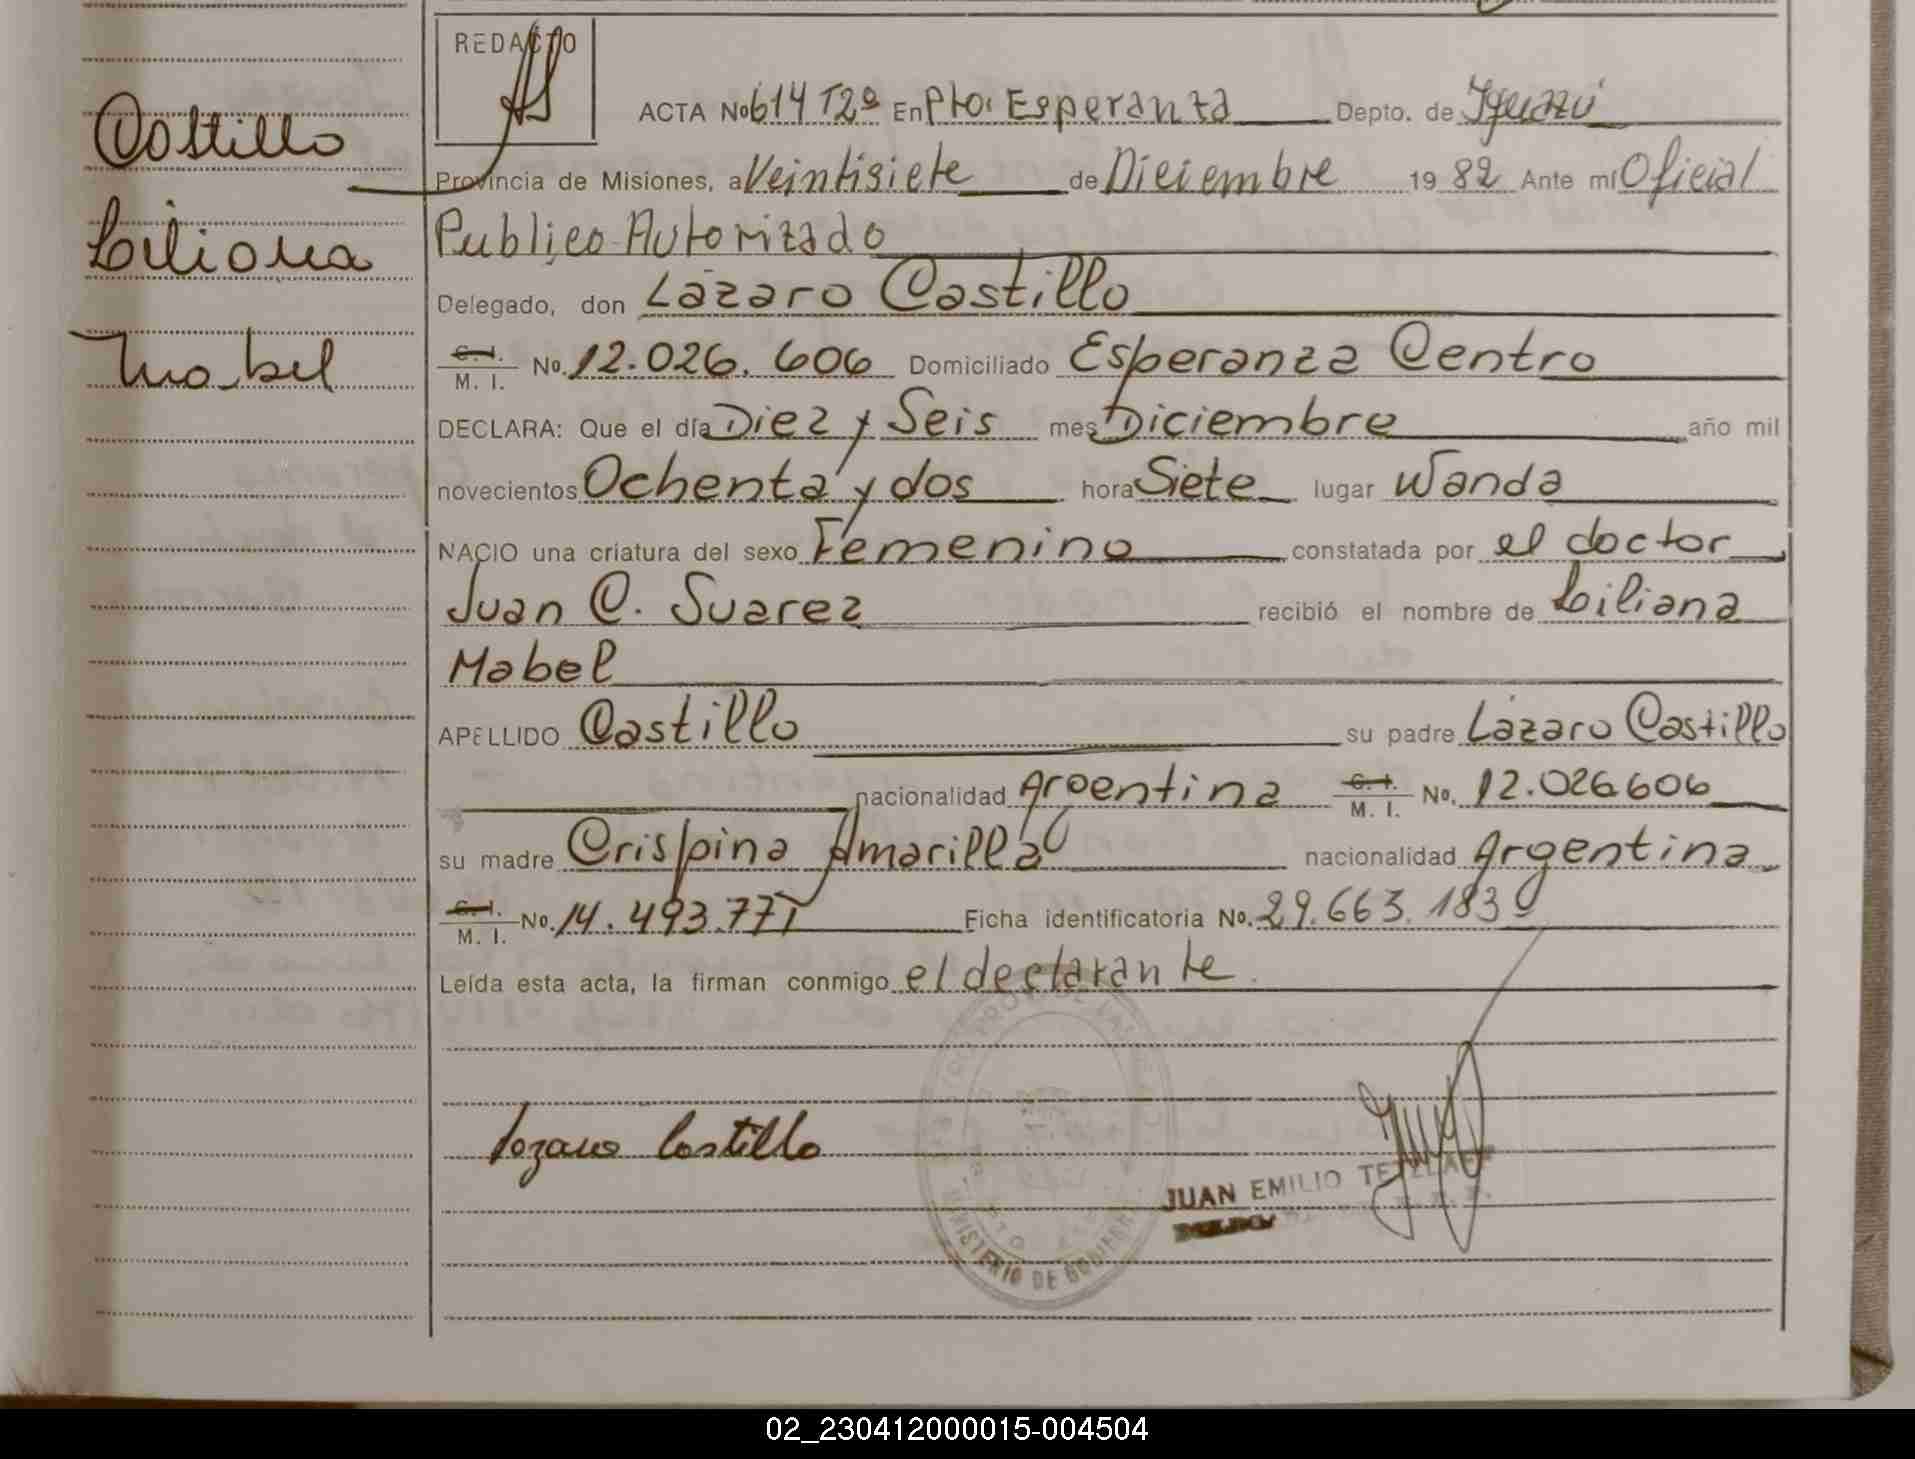 REDACTO
ACTA No 614 T2º En Pto. Esperanza Depto. de Iguazú
Castillo
Provincia de Misiones, a Veintisiete de Diciembre 1982 Ante mí Oficial
Liliana
Publico Autorizado
Delegado, don Lázaro Castillo
Mabel
C. I. M. I. No. 12.026.606 Domiciliado Esperanza Centro
DECLARA: Que el día Diez y Seis mes Diciembre año mil
novecientos Ochenta y dos hora Siete lugar Wanda
NACIO una criatura del sexo Femenino constatada por el doctor
Juan C. Suarez recibió el nombre de Liliana
Mabel
APELLIDO Castillo su padre Lázaro Castillo
nacionalidad Argentina C. I. M. I. No. 12.026.606
su madre Crispina Amarilla nacionalidad Argentina
C. I. M. I. No. 14.493.771 Ficha identificatoria No. 29.663.183
Leída esta acta, la firman conmigo el declarante.
Lozaro Castillo
JUAN EMILIO
MINISTERIO DE GOBIERNO
02_230412000015-004504